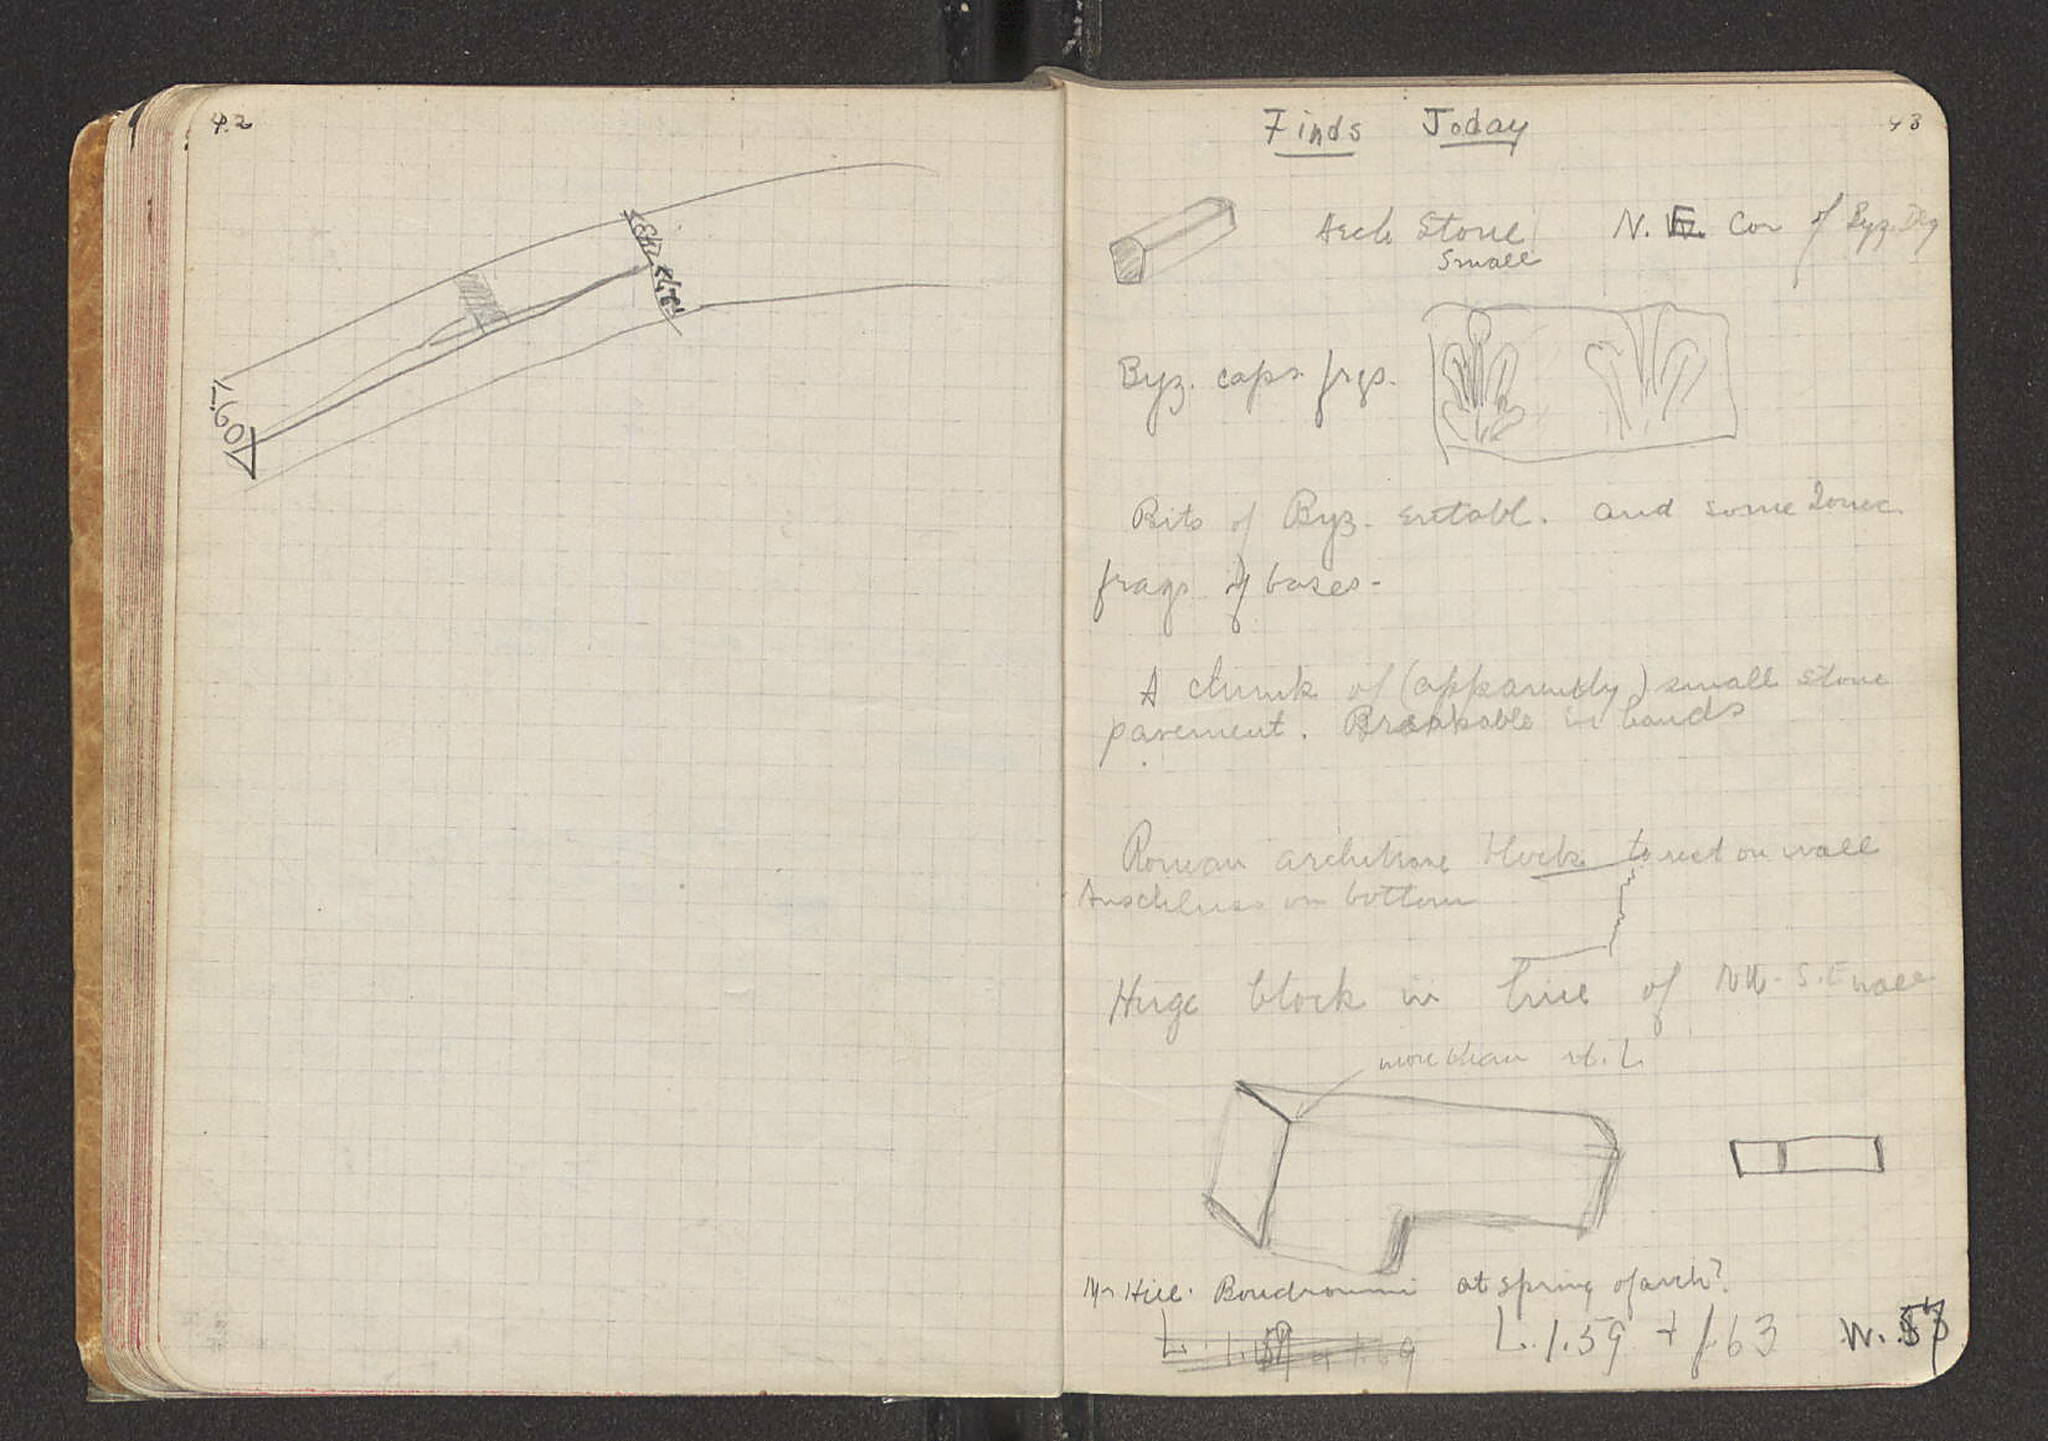 42
L.60
43
Finds Today
Arch Stone N.E. Cor of Byz. Dig
Small
Byz. caps frgs.
Bits of Byz. entabl. and some Ionic
frags of bases-
A chunk of (apparently) small stone
pavement. Breakable in hands
Roman architrave block to rest on wall
Anschluss on bottom
Huge block in line of NW-S.E wall
more than rt. L
Mr Hill. Boudroumi at spring of arch?
L. 1.59 + 1.69 L. 1.59 + 1.63 W.